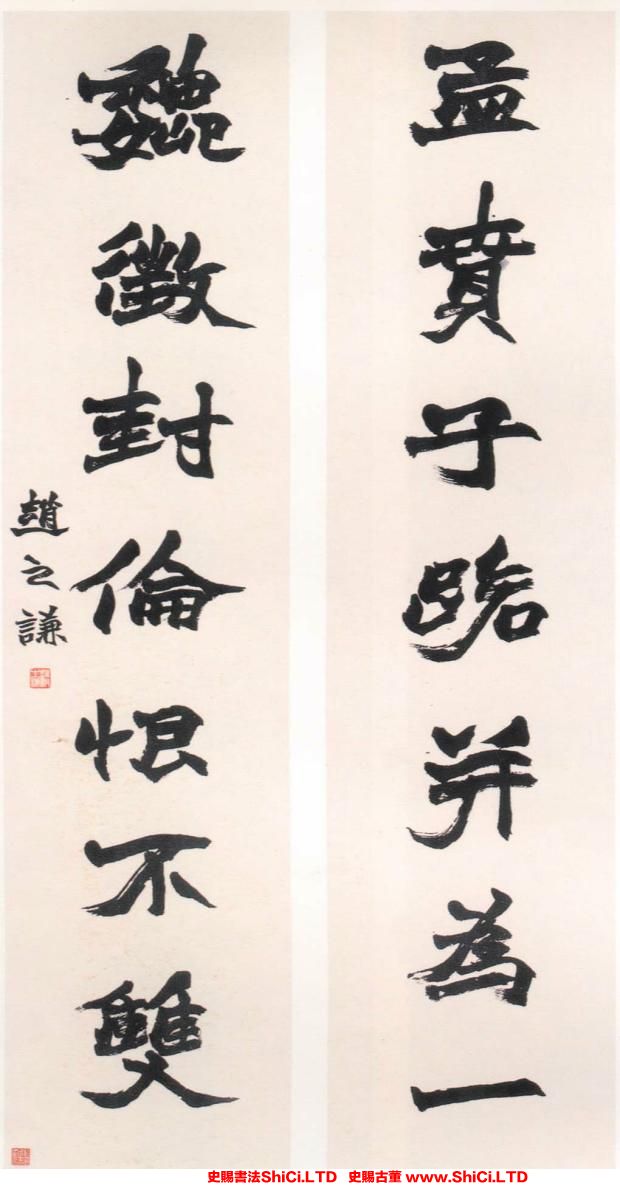 孟賁子路并為一
魏徵封倫恨不雙
趙之謙
史賜書法ShiCi.LTD 史賜古董 www.ShiCi.LTD